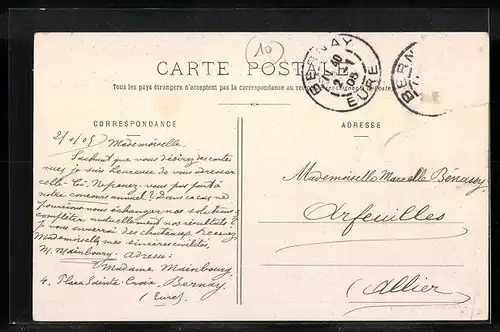 10
CARTE POSTALE
Tous les pays étrangers n'acceptent pas la correspondance au recto
BERNAY
EURE
BERN
CORRESPONDANCE
ADRESSE
Mademoiselle.
Sachant que vous désirez des cartes
vues je suis heureuse de vous adresser
celle-ci. Ne prenez-vous pas part à
notre concours annuel? Dans ce cas ne
pourrions-nous échanger nos solutions
compléter mutuellement nos résultats?
je vous enverrai des chateaux. Recevez
Mademoiselle mes sincères civilités.
M. Mainbourg - Adresse:
Madame Mainbourg
4. Place Sainte-Croix, Bernay
(Eure)
Mademoiselle Marcelle Benassy
Arfeuilles
Allier